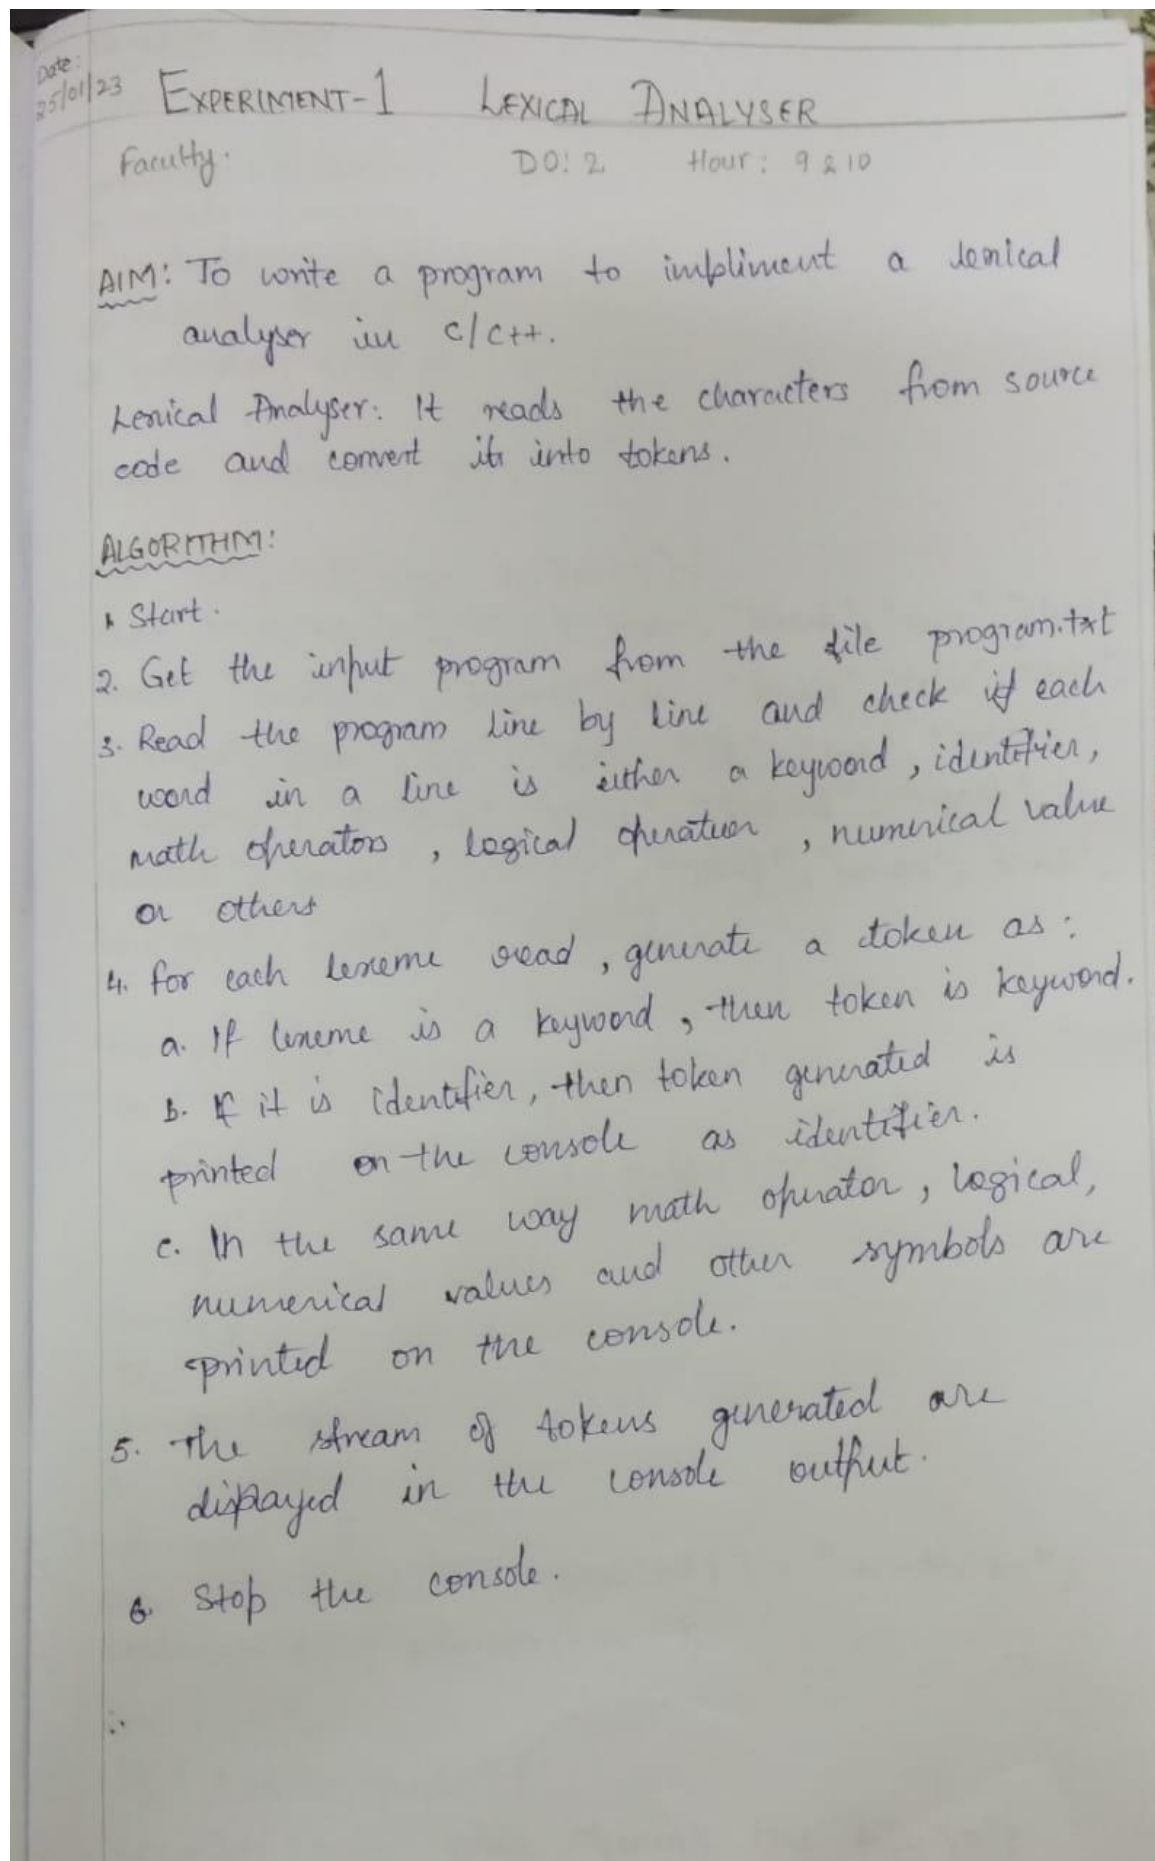 Date:
25/01/23
EXPERIMENT-1 LEXICAL ANALYSER
Faculty. DO: 2 Hour: 9 & 10
AIM: To write a program to impliment a lexical
analyser in c/c++.
Lexical Analyser: It reads the characters from source
code and convert it into tokens.
ALGORITHM:
1. Start.
2. Get the input program from the file program.txt
3. Read the program line by line and check if each
word in a line is either a keyword, identifier,
math operators, logical operator, numerical value
or others
4. for each lexeme read, generate a token as:
a. If lexeme is a keyword, then token is keyword.
b. If it is identifier, then token generated is
printed on the console as identifier.
c. In the same way math operator, logical,
numerical values and other symbols are
printed on the console.
5. The stream of tokens generated are
displayed in the console output.
6. Stop the console.